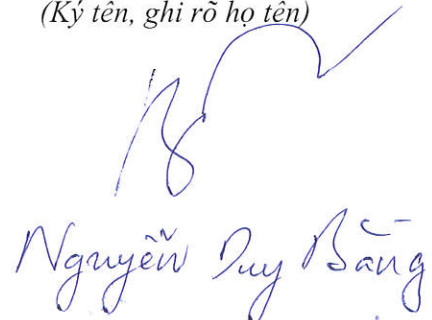 (Ký tên, ghi rõ họ tên)
Nguyễn Duy Bằng